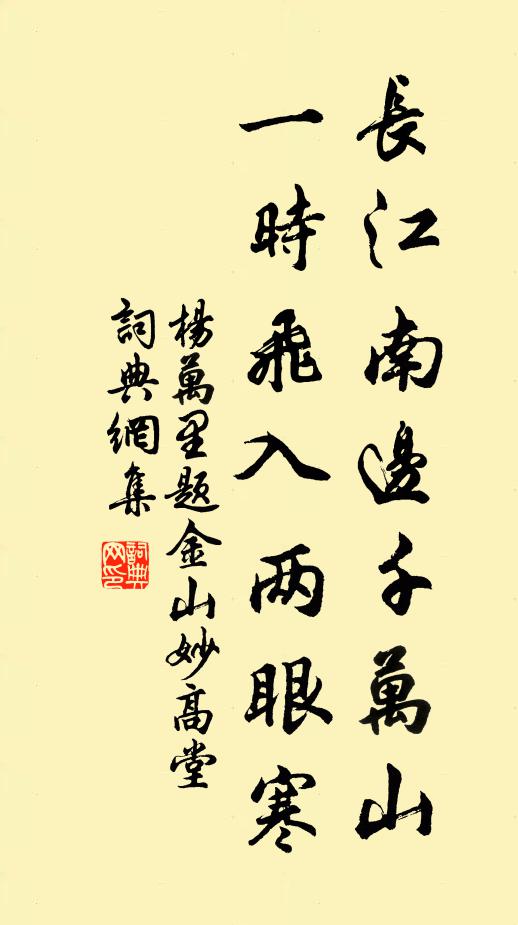 長江南邊千萬山
一時飛入两眼寒
楊萬里题金山妙高堂
詞典網集
詞典
网印